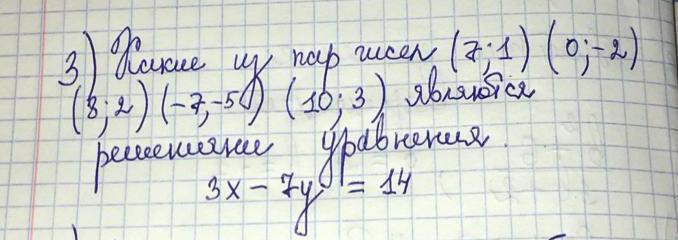 3) Какие из пар чисел (7;1) (0;-2)
(8;2) (-7,-5) (10;3) являются
решениями уравнения.
3x - 7y = 14